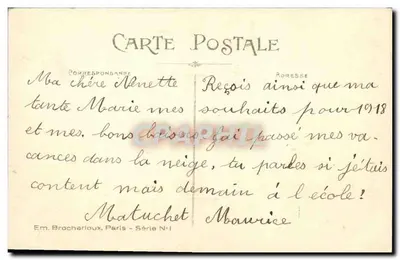 CARTE POSTALE
CORRESPONDANCE ADRESSE
Ma chére Nénette Reçois ainsi que ma
tante Marie mes souhaits pour 1918
et mes bons j'ai passé mes va-
cances dans la neige, tu parles si j'étais
content mais demain à l'école!
Matuchet Maurice
Em. Bracherioux, Paris - Série No 1